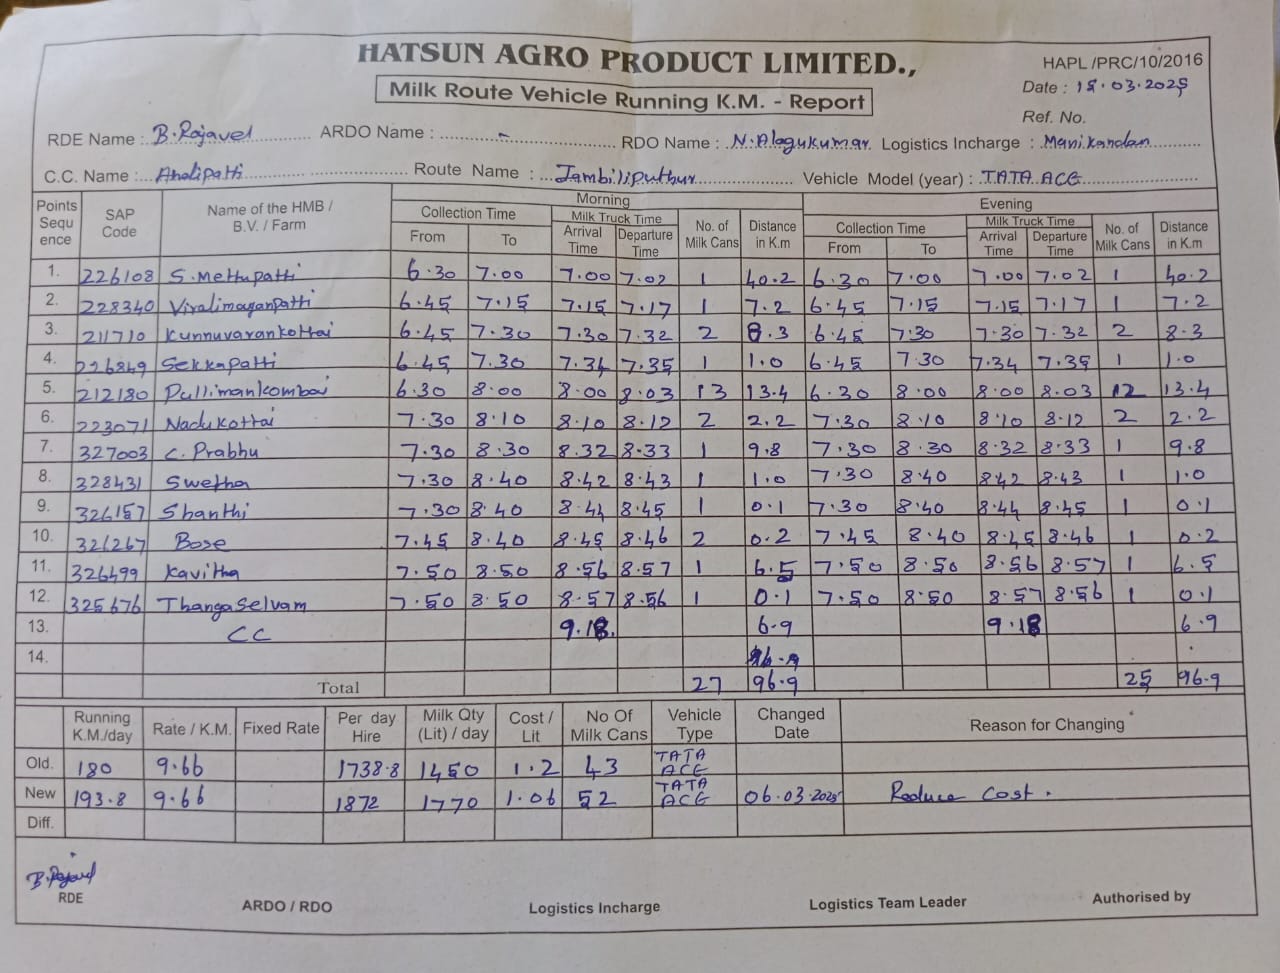 HATSUN AGRO PRODUCT LIMITED.,
HAPL /PRC/10/2016
Milk Route Vehicle Running K.M. - Report
Date : 15.03.2025
Ref. No.
RDE Name : B.Rajavel ARDO Name : - RDO Name : N.Alagukumar Logistics Incharge : Manikandan
C.C. Name : Analipatti Route Name : Jambiliputhur Vehicle Model (year) : TATA ACE
Points Sequence SAP Code Name of the HMB / B.V. / Farm Morning Evening
Collection Time Milk Truck Time No. of Milk Cans Distance in K.m Collection Time Milk Truck Time No. of Milk Cans Distance in K.m
From To Arrival Time Departure Time From To Arrival Time Departure Time
1. 226108 S.Mettupatti 6.30 7.00 7.00 7.02 1 40.2 6.30 7.00 7.00 7.02 1 40.2
2. 228340 Viralimayanpatti 6.45 7.15 7.15 7.17 1 7.2 6.45 7.15 7.15 7.17 1 7.2
3. 211710 Kunnuvarankottai 6.45 7.30 7.30 7.32 2 8.3 6.45 7.30 7.30 7.32 2 8.3
4. 226849 Sekkapatti 6.45 7.30 7.34 7.35 1 1.0 6.45 7.30 7.34 7.35 1 1.0
5. 212180 Pullimankombai 6.30 8.00 8.00 8.03 13 13.4 6.30 8.00 8.00 8.03 12 13.4
6. 223071 Nadukottai 7.30 8.10 8.10 8.12 2 2.2 7.30 8.10 8.10 8.12 2 2.2
7. 327003 C. Prabhu 7.30 8.30 8.32 8.33 1 9.8 7.30 8.30 8.32 8.33 1 9.8
8. 328431 Swetha 7.30 8.40 8.42 8.43 1 1.0 7.30 8.40 8.42 8.43 1 1.0
9. 326157 Shanthi 7.30 8.40 8.44 8.45 1 0.1 7.30 8.40 8.44 8.45 1 0.1
10. 326267 Bose 7.45 8.40 8.45 8.46 2 0.2 7.45 8.40 8.45 8.46 1 0.2
11. 326499 Kavitha 7.50 8.50 8.56 8.57 1 6.5 7.50 8.50 8.56 8.57 1 6.5
12. 325676 ThangaSelvam 7.50 8.50 8.57 8.56 1 0.1 7.50 8.50 8.57 8.56 1 0.1
13. CC 9.18. 6.9 9.18 6.9
14.
Total 27 96.9 25 96.9
Running K.M./day Rate / K.M. Fixed Rate Per day Hire Milk Qty (Lit) / day Cost / Lit No Of Milk Cans Vehicle Type Changed Date Reason for Changing
Old. 180 9.66 1738.8 1450 1.2 43 TATA ACE
New 193.8 9.66 1872 1770 1.06 52 TATA ACE 06.03.2025 Reduce Cost.
Diff.
B.Rajavel
RDE ARDO / RDO Logistics Incharge Logistics Team Leader Authorised by